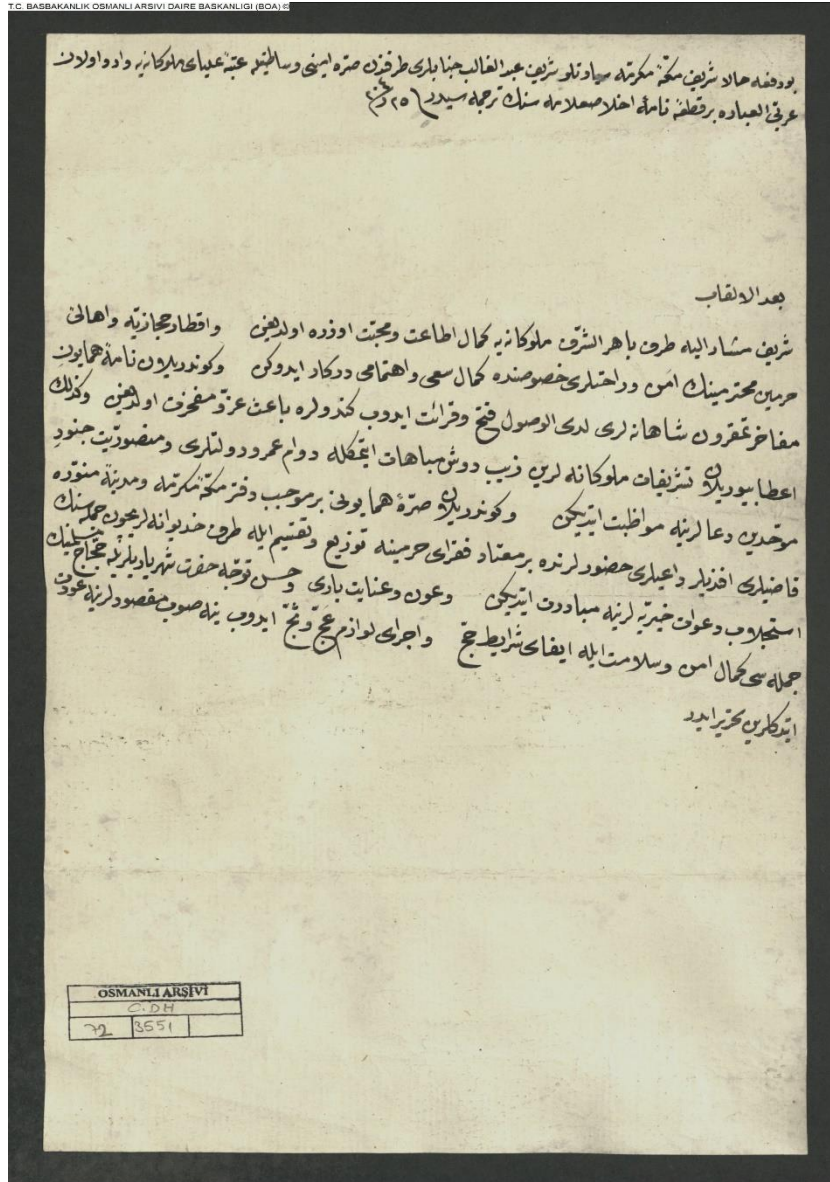 T.C. BASBAKANLIK OSMANLI ARSIVI DAIRE BASKANLIGI (BOA) ©
بو دفعه حالا شريف مكهٔ مكرمه سيادتلو شريف عبد الغالب جنابلرى طرفندن صره امينى وساطتيله عتبهٔ علياى ملوكانه يه وارد اولان
عربى العباره بر قطعه نامهٔ اخلاصعلامه سنك ترجمه سيدر
بعد الالقاب
شريف مشار اليه طرف باهر الشرف ملوكانه يه كمال اطاعت ومحبت اوزره اولديغن واقطار حجازيه واهالئ
حرمين محترمينك امن وراحتلرى خصوصنده كمال سعى واهتمامى دركار ايدوكن وكوندريلان نامهٔ همايون
مفاخر مقرون شاهانه لرى لدى الوصول فتح وقرائت ايدوب كندولره باعث عز ومفخرت اولديغن وكذلك
اعطا بيوريلان تشريفات ملوكانه لرين زيب دوش مباهات ايتمكله دوام عمر ودولتلرى ومنصوريت جنود
موحدين دعالرينه مواظبت ايتديكن وكوندريلان صرهٔ همايونى بر موجب دفتر مكهٔ مكرمه ومدينهٔ منوره
قاضيلرى افنديلر واعيلرى حضورلرنده بر معتاد فقراى حرمينه توزيع وتقسيم ايله طرف خديوانه لريچون جمله سنك
استجلاب دعوات خيريه لرينه مبادرت ايتديكن وعون وعنايت بارى وحسن توجه حضرت شهرياريلريله حجاج مسلمينك
جمله سى كمال امن وسلامت ايله ايفاى شرايط حج واجراى لوازم عج وثج ايدوب ينه صوب مقصودلرينه عودت
ايتدكلرين تحرير ايدر
OSMANLI ARŞİVİ
C.DH
72 3551